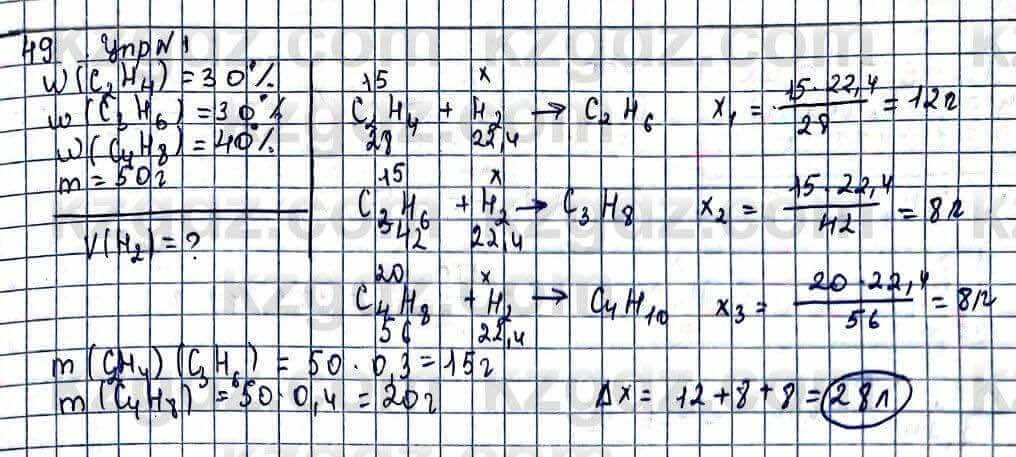 49 Упр№1
W(C2H4) = 30%
W(C3H6) = 30%
W(C4H8) = 40%
m = 50г
V(H2) = ?
15 x
C2H4 + H2 → C2H6 x1 = 15·22,4 / 28 = 12л
28 22,4
15 x
C3H6 + H2 → C3H8 x2 = 15·22,4 / 42 = 8л
42 22,4
20 x
C4H8 + H2 → C4H10 x3 = 20·22,4 / 56 = 8л
56 22,4
m(C2H4)(C3H6) = 50·0,3 = 15г
m(C4H8) = 50·0,4 = 20г
Δx = 12+8+8 = 28л
kzgdz.com